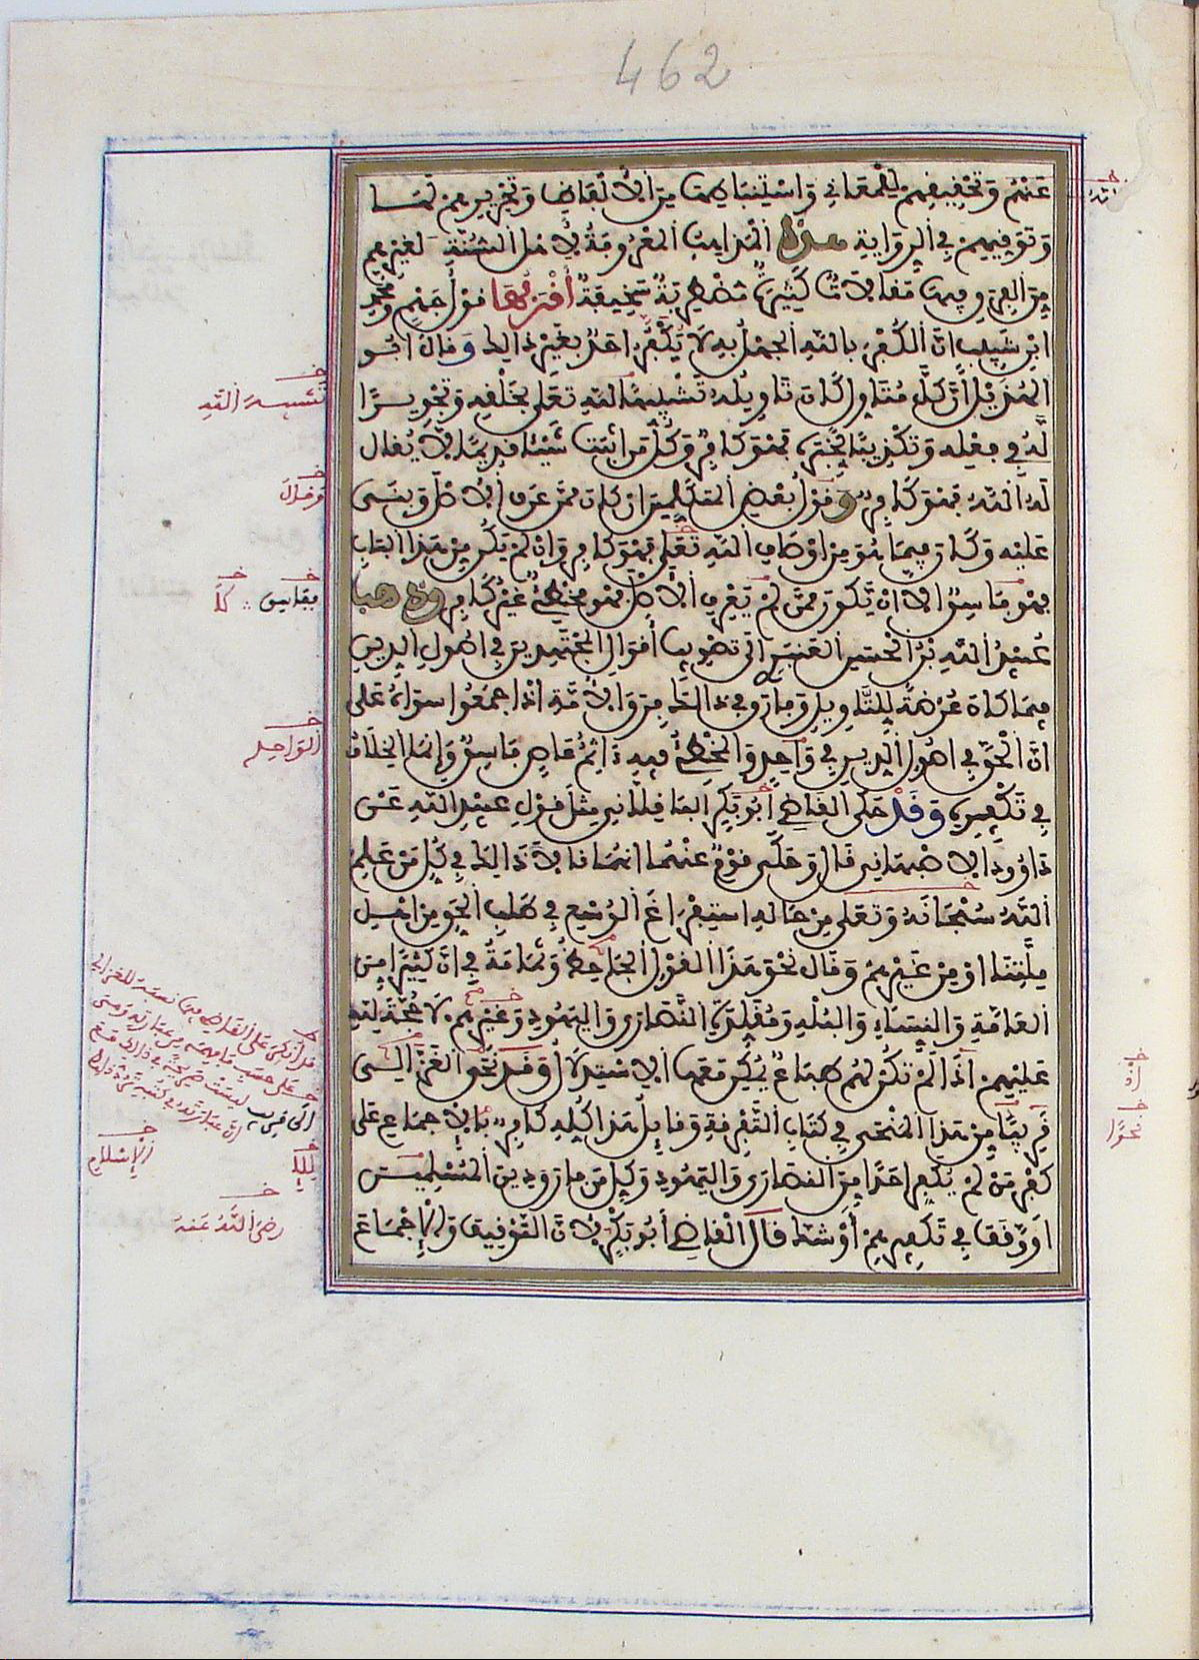 462
عَنْهُمْ وَتَحْقِيقِهِمْ لِلْمَعَانِي وَاسْتِنْبَاطِهَا مِنَ الْأَلْفَاظِ وَتَحْرِيرِهِمْ لَهَا
وَتَوْقِيهِمْ فِي الرِّوَايَةِ هذه الْمَزَايَا الْمَعْرُوفَةُ لِأَهْلِ السُّنَّةِ لِغَيْرِهِمْ
مِنَ الْفِرَقِ فِيهَا مَقَالَاتٌ كَثِيرَةٌ مُضْطَرِبَةٌ سَخِيفَةٌ أَقْرَبُهَا قَوْلُ جَهْمٍ وَمُحَمَّدِ
ابْنِ شَبِيبٍ انَّ الْكُفْرَ بِاللَّهِ الْجَهْلُ بِهِ لَا يَكْفُرُ احَدٌ بِغَيْرِ ذَالِكَ وَقَالَ ابُو
الْهُذَيْلِ انَّ كُلَّ مُتَأَوِّلٍ كَانَ تَاوِيلُهُ تَشْبِيهًا لِلَّهِ تَعَلَى بِخَلْقِهِ وَتَجْوِيرًا
لَهُ فِي فِعْلِهِ وَتَكْذِيبًا لِخَبَرِهِ فَهُوَ كَافِرٌ وَكُلُّ مَنَ اثْبَتَ شَيْئًا قَدِيمًا لَا يُقَالُ
لَهُ اللَّهُ فَهُوَ كَافِرٌ وَقَوْلُ بَعْضِ الْمُتَكَلِّمِينَ ان كَانَ مِمَّنْ عَرَفَ الْأَصْلَ وَبَنَى
عَلَيْهِ وَكَانَ فِيمَا هُوَ مِنَ اوْصَافِ اللَّهِ تَعَلَى فَهُوَ كَافِرٌ وَإِنْ لَمْ يَكُنْ مِنْ هَذَا الْبَابِ
فَهُوَ فَاسِقٌ الَّا انْ يَكُونَ مِمَّنْ لَمْ يَعْرِفِ الْأَصْلَ فَهُوَ مُخْطِئٌ غَيْرُ كَافِرٍ وذهب
عُبَيْدُ اللَّهِ بْنُ الْحَسَنِ الْعَنْبَرِي الَى تَصْوِيبِ أَقْوَالِ الْمُجْتَهِدِينَ فِي اصُولِ الدِّينِ
فِيمَا كَانَ عُرْضَةً لِلتَّاوِيلِ وَفَارَقَ فِي ذَالِكَ فِرَقَ الْأُمَّةِ اذَا جْمَعُوا سِوَاهُ عَلَى
انَّ الْحَقَّ فِي اصُولِ الدِّينِ فِي وَاحِدٍ وَالْمُخْطِئُ فِيهِ ءَاثِمٌ عَاصٍ فَاسِقٌ وَإِنَّمَا الْخِلَافُ
فِي تَكْفِيرِهِ وَقَدْ حَكَى الْقَاضِي أَبُو بَكْرٍ الْبَاقِلَّانِي مِثْلَ قَوْلِ عُبَيْدِ اللَّهِ عَنْ
دَاوُودَ الْاصْبَهَانِي قَالَ وَحَكَى قَوْمٌ عَنْهُمَا انَّهُمَا قَالَا ذَالِكَ فِي كُلِّ مَنْ عَلِمَ
اللَّهُ سُبْحَانَهُ وَتَعَلَى مِنْ حَالِهِ اسْتِفْرَاغَ الْوُسْعِ فِي طَلَبِ الْحَقِّ مِنَ اهْلِ
مِلَّتِنَا اوْ مِنْ غَيْرِهِمْ وَقَالَ نَحْوَ هَذَا الْقَوْلِ الْجَاحِظُ وَثُمَامَةُ فِي انَّ كَثِيرًا مِنَ
الْعَامَّةِ وَالنِّسَاءِ وَالْبُلْهِ وَمُقَلِّدَةِ النَّصَارَى وَالْيَهُودِ وَغَيْرِهِمْ لَا حُجَّةَ لِلَّهِ
عَلَيْهِمْ اذْ لَمْ تَكُنْ لَهُمْ طِبَاعٌ يُمْكِنُ مَعَهَا الْاسْتِدْلَالُ وَقَدْ نَحَا الْغَزَّالِي
قَرِيبًا مِنْ هَذَا الْمَنْحَى فِي كِتَابِ التَّفْرِقَةِ وَقَايِلُ هَذَا كُلِّهِ كَافِرٌ بِالْإِجْمَاعِ عَلَى
كُفْرِ مَنْ لَمْ يُكَفِّرَ احَدًا مِنَ النَّصَارَى وَالْيَهُودِ وَكُلِّ مَنْ فَارَقَ دِينَ الْمُسْلِمِينَ
اوْ وَقَفَ فِي تَكْفِيرِهِمْ أَوْ شَكَّ قَالَ الْقَاضِي أَبُو بَكْرٍ لِأَنَّ التَّوْقِيفَ وَالْإِجْمَاعَ
تَشْبِيهَ اللَّهِ
وَقَالَ
بِفَاسِقٍ كَلَّا
الْوَاحِدِ
لِلَّهِ
الْإِسْلَامِ
رَضِيَ اللَّهُ عَنْهُ
نَحْوًا